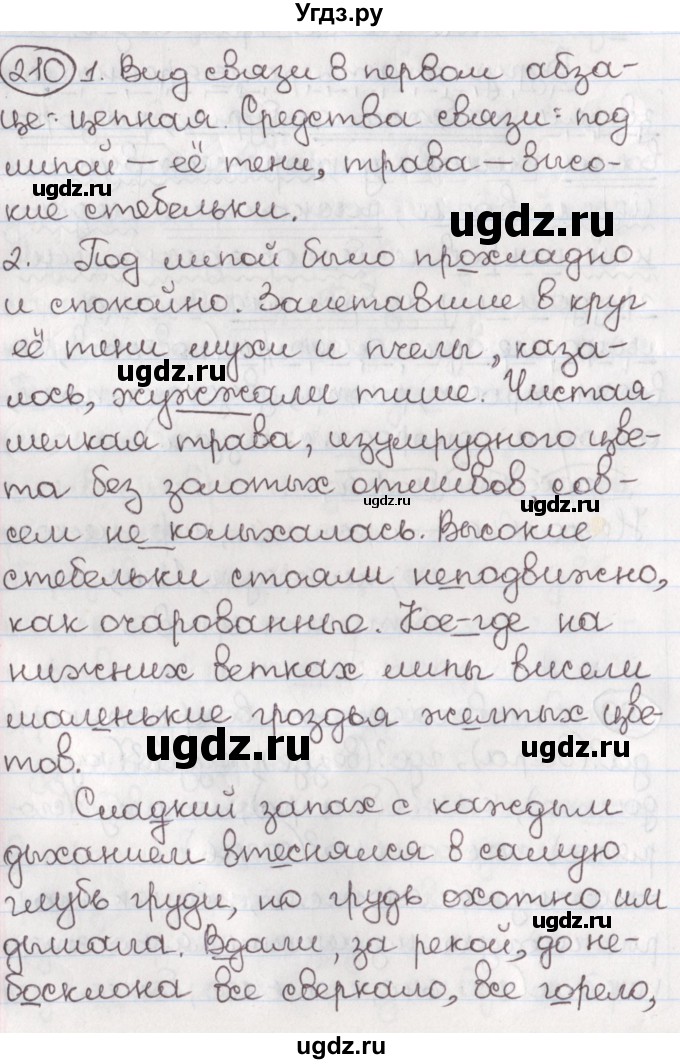 Угдз.ру
210 1. Вид связи в первом абза-
це - цепная. Средства связи: под
липой — её тени, трава - высо-
ugdz.ru
кие стебельки.
ugdz.ru
ugdz.ru
2. Под липой было прохладно
и спокойно. Залетавшие в круг
её тени мухи и пчелы, каза-
ugdz.ru
лось, жужжали тише. Чистая
мелкая трава, изумрудного цве-
та без золотых отливов, сов-
ugdz.ru
сем не колыхалась. Высокие
стебельки стояли неподвижно,
как очарованные. Кое-где на
нижних ветках липы висели
маленькие гроздья желтых цве-
ugdz.ru
ugdz.ru
тов.
Сладкий запах с каждым
дыханием втеснялся в самую
глубь груди, но грудь охотно им
ugdz.ru
дышала. Вдали, за рекой, до не-
босклона все сверкало, все горело,
ugdz.ru